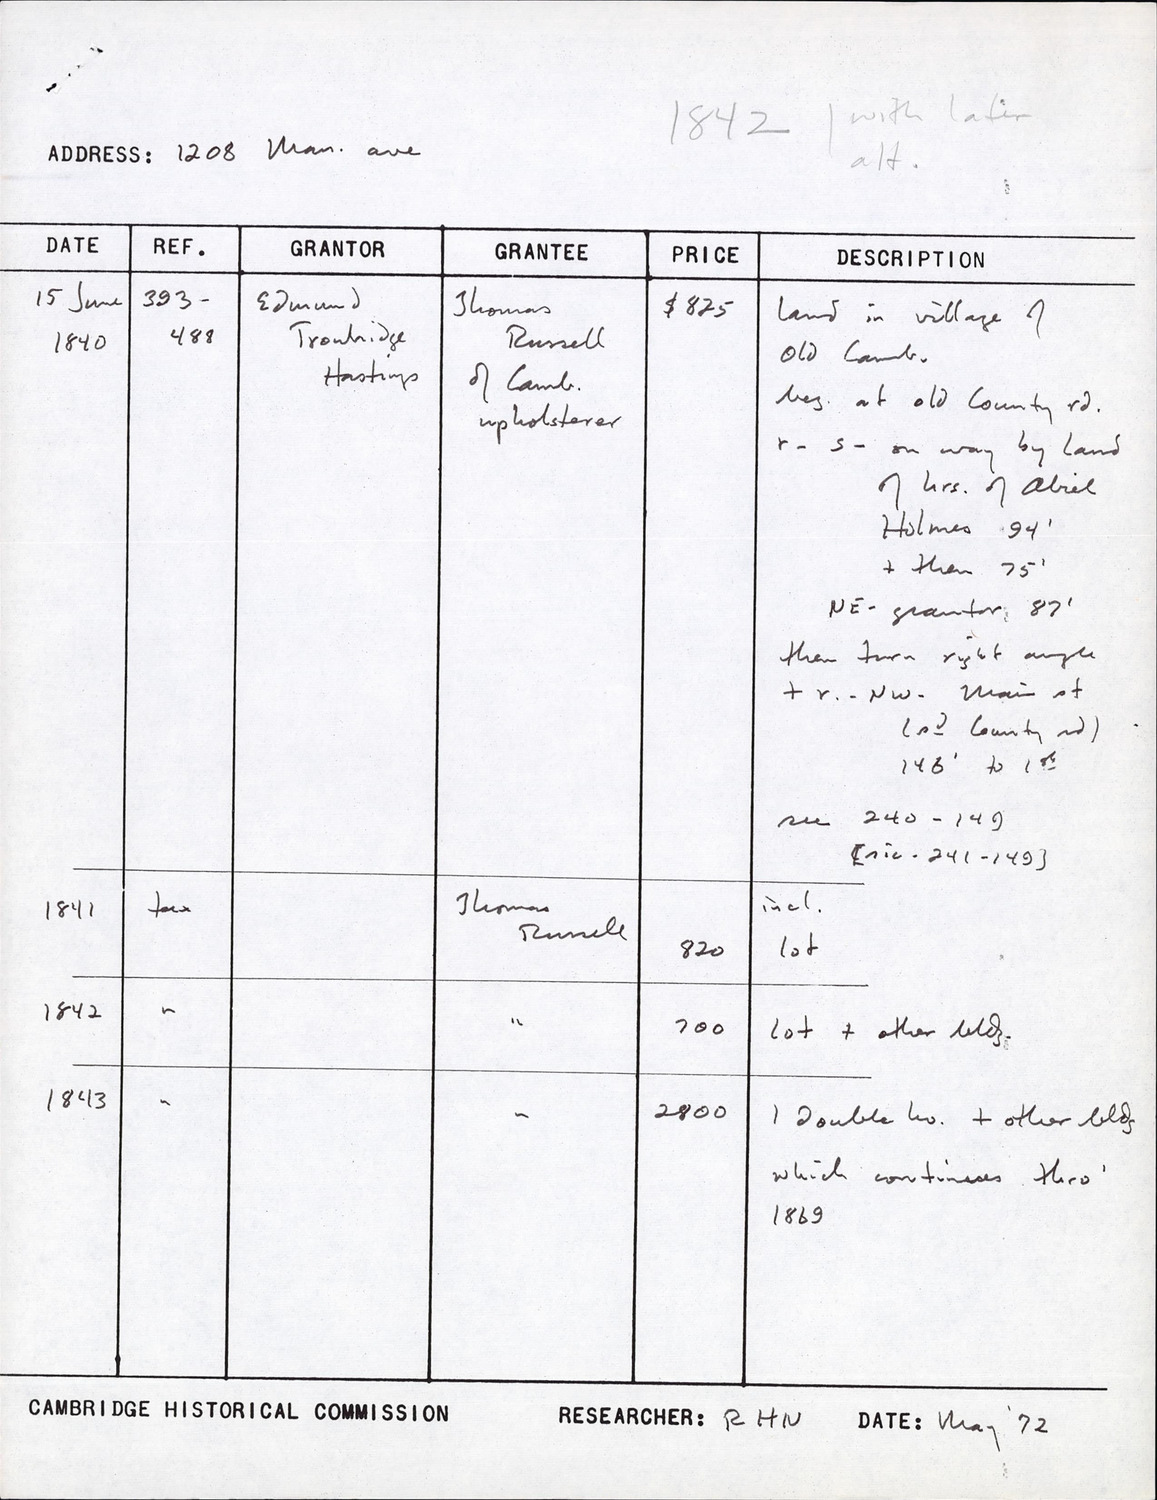 1842 | with later
alt.
ADDRESS: 1208 Mass. ave
DATE REF. GRANTOR GRANTEE PRICE DESCRIPTION
15 June 393- Edmund Thomas $825 land in village of
1840 488 Trowbridge Russell Old Camb.
Hastings of Camb. beg. at old County rd.
upholsterer r- s- on way by land
of hrs. of Abiel
Holmes 94'
+ then 75'
NE- grantor, 87'
then turn right angle
+ r.- NW- Main st
County rd)
146' to 1st
see 240-149
[sic. 241-149]
1841 tax Thomas incl.
Russell 820 lot
1842 " " 700 lot + other bldg.
1843 " " 2800 1 Double ho. + other bldg
which continues thro'
1869
CAMBRIDGE HISTORICAL COMMISSION RESEARCHER: RHN DATE: May '72